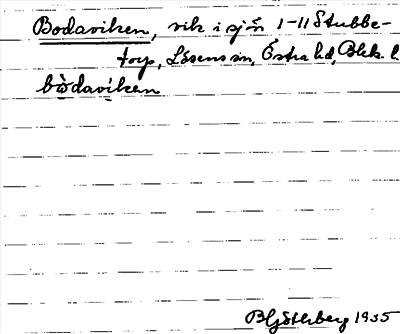 Bodaviken, vik i sjön 1-11 Stubbe-
torp, Lösens sn, Östra hd, Blek. l.
bòdavíken
B Götlberg 1935